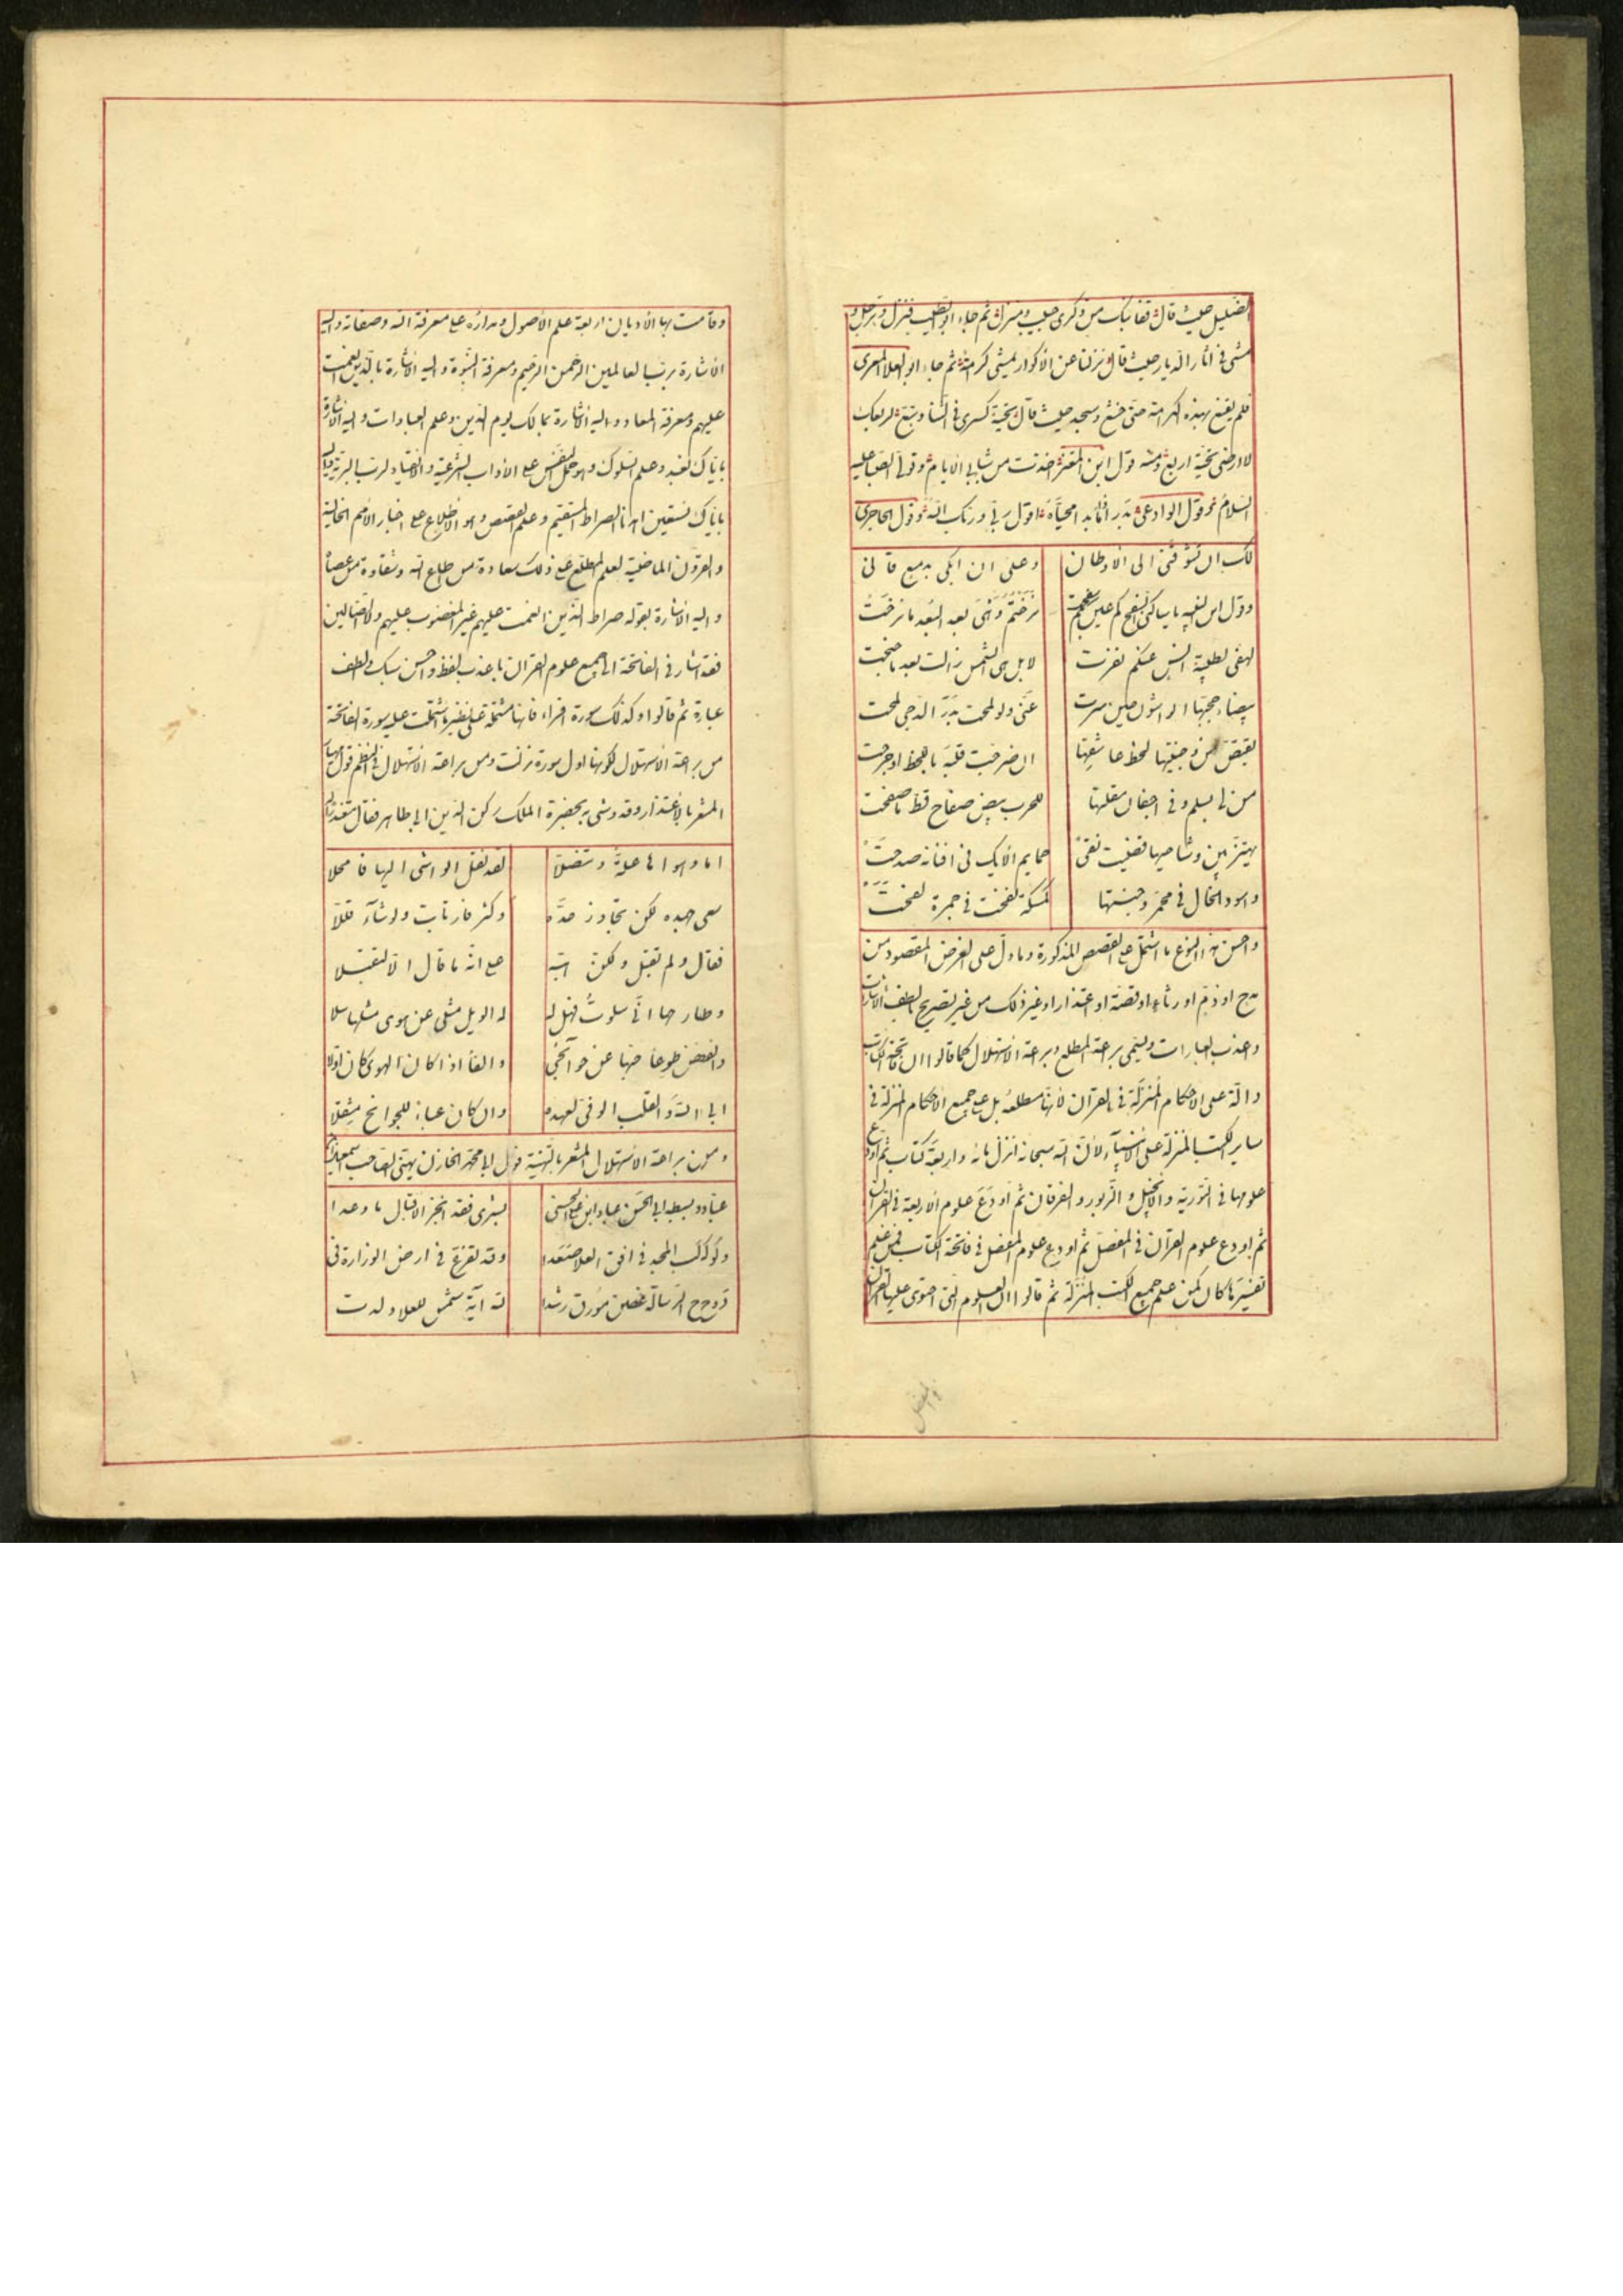 الضليل حيث قال قفا نبك من ذكرى حبيب ومنزل ثم جاء ابو الطيب فنزل وترجل و
مشى فى اثار الديار حيث قال نزلنا عن الاكوار نمشى كرامة ثم جاء ابو العلا المعرى
فلم يقنع بهذه الكرامة حتى خشع وسجد حيث قال تحية كسرى فى الثنا وتبع لربعك
لا ارضى تحية اربع ومنه قول ابن المعتز اخذت من شبابى الايام وتولى الصبا عليه
السلام وقول الوادعى بدر اذا ما بدا محياه اقول ربى وربك الله وقول الحاجرى
لك ان تشوقنى الى الاوطان
وعلى ان ابكى بدمع قانى
وقول ابن النبيه يا ساكنى السفح كم عين بكم سفحت
نزحتم وهى بعد البعد ما نزحت
لهفى لظبية انس عنكم نفرت
لا بل هى الشمس زالت بعد ما جنحت
بيضاء حجبها الواشون حين سرت
عنى ولو لمحت بدر الدجى لمحت
يقتص من وجنتيها لحظ عاشقها
ان ضرجت قلبه باللحظ او جرحت
من لى بسلم وفى اجفان مقلتها
للحرب بيض صفاح قط ما صفحت
يهتز بين وشاحيها قضيب نقى
حمايم الايك فى افنانه صدحت
واسود الخال فى محمر وجنتها
كمسكة نفحت فى جمرة لفحت
واحسن هذا النوع ما اشتمل على القصص المذكورة وما دل على الغرض المقصود من
مدح او ذم او رثاء او قصة او عتذار او غير ذلك من غير تصريح بالطف الاشارت
وعذب العبارات ويسمى براعة المطلع وبرعة الاستهلال كما قالوا ان فاتحة الكتاب
دالة على الاحكام المنزلة فى القرآن لانها مطلعه بل على جميع الاحكام المنزلة فى
ساير الكتب المنزلة على الانبياء لان الله سبحانه انزل مائة واربعة كتاب ثم اودع
علومها فى التورية والانجيل والزبور والفرقان ثم اودع علوم الاربعة فى القران
ثم اودع علوم القرآن فى المفصل ثم اودع علوم المفصل فى فاتحة الكتاب فمن علم
تفسيرها كان كمن علم جميع الكتب المنزلة ثم قالوا ان العلوم التى احتوى عليها القران
وقامت بها الاديان اربعة علم الاصول ومداره على معرفة الله وصفاته واليه
الاشارة برب العالمين الرحمن الرحيم ومعرفة النبوة واليه الاشارة بالذين انعمت
عليهم ومعرفة المعاد واليه الاشارة بمالك يوم الدين وعلم العبادات واليه الاشارة
باياك نعبد وعلم السلوك وهو حمل النفس على الاداب الشرعية والانقياد لرب البرية واليه
باياك نستعين اهدنا الصراط المستقيم وعلم القصص وهو الاطلاع على اخبار الامم الخالية
والقرون الماضية ليعلم المطلع على ذلك سعادة من طاع الله وشقاوة من عصاه
واليه الاشارة بقوله صراط الذين انعمت عليهم غير المغضوب عليهم ولا الضالين
فقد اشار فى الفاتحة الى جميع علوم القران باعذب لفظ واحسن سبك والطف
عبارة ثم قالوا وكذلك سورة اقراء فانها مشتملة على نظير ما اشتملت عليه سورة الفاتحة
من براعة الاستهلال لكونها اول سورة نزلت ومن براعة الاستهلال فى النظم قول مهيار
المشعر بالاعتذار وقد وشى به بحضرة الملك ركن الدين ابى طاهر فقال متغزلا
اما وهواها عذرة وتنصلا
لقد نقل الواشى اليها فامحلا
سعى جهده لكن تجاوز حده
وكثر فارتابت ولو شاء قللا
فقال ولم تقبل ولكن
على انه ما قال الا لتقبلا
وطارحها انى سلوت فهل
له الويل مثلى عن هوى مثلها سلا
وانفض طوعا حبها عن جوانحى
والقا اذا كان الهوى كان اولا
ابى الله والقلب الوفى بعهده
وان كان عباء للجوانح مثقلا
ومن براعة الاستهلال المشعر بالتهنية قول ابى محمد الخازن يهنى الصاحب
عباد بسبطه ابى الحسن عباد ابن على الحسنى
بشرى فقد انجز الاقبال ما وعدا
وكوكب المجد فى افق العلا صعدا
وقد تفرع فى ارض الوزارة فى
دوح الرسالة غصن مورق رشدا
لله آية شمس للعلا ولدت